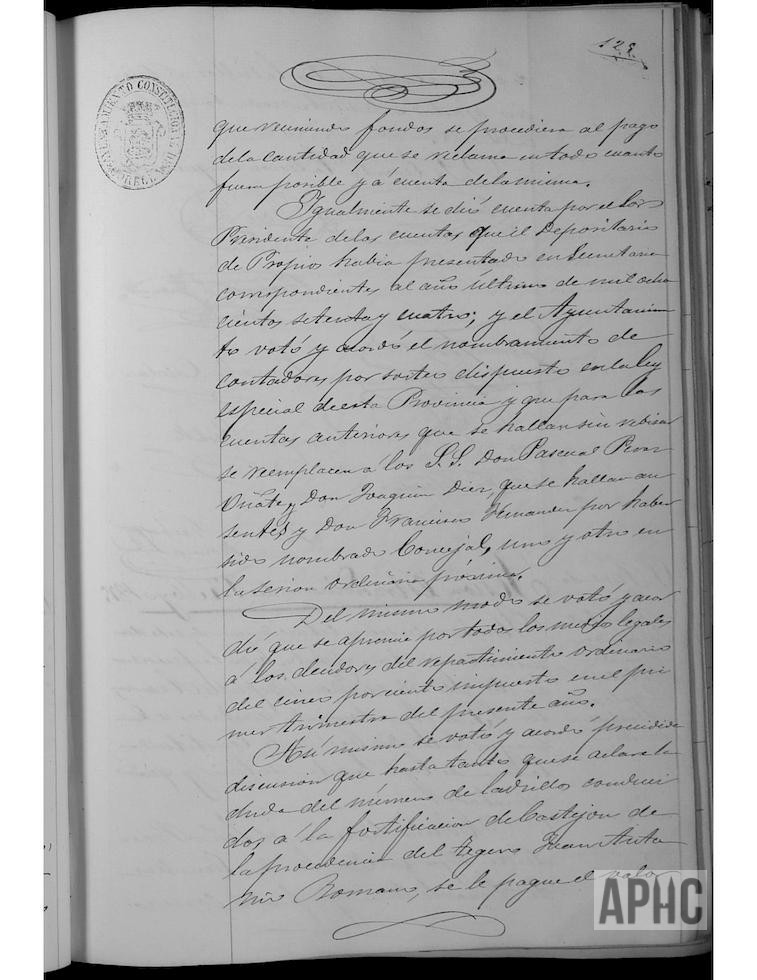 128.
AYUNTAMIENTO CONSTITUCIONAL DE CORELLA
que reuniendo fondos se procediera al pago
de la cantidad que se reclama en todo cuanto
fuera posible y á cuenta de la misma.
Igualmente se dió cuenta por el Sor
Presidente de las cuentas que el Depositario
de Propios habia presentado en Secretaria
correspondientes al año último de mil ocho
cientos setenta y cuatro; y el Ayuntamien
to votó y acordó el nombramiento de
contadores por sorteo dispuesto en la ley
especial de esta Provincia y que para las
cuentas anteriores que se hallan sin rebisar
se reemplacen á los S.S. Don Pascual
Oñate y Don Joaquin Diez, que se hallan au
sentes y Don Francisco Fernandez por haber
sido nombrado Concejal, uno y otro en
la sesion ordinaria próxima.
Del mismo modo se votó y acor
dó que se apremie por todos los medios legales
á los deudores del repartimiento ordinario
del cinco por ciento impuesto en el pri
mer trimestre del presente año.
Asi mismo se votó y acordó precedida
discusion que hasta tanto que se aclare la
duda del número de ladrillos conduci
dos á la fortificacion de Castejon de
la procedencia del tegero Juan Anto
nio Romano, se le pague el valor
APHC